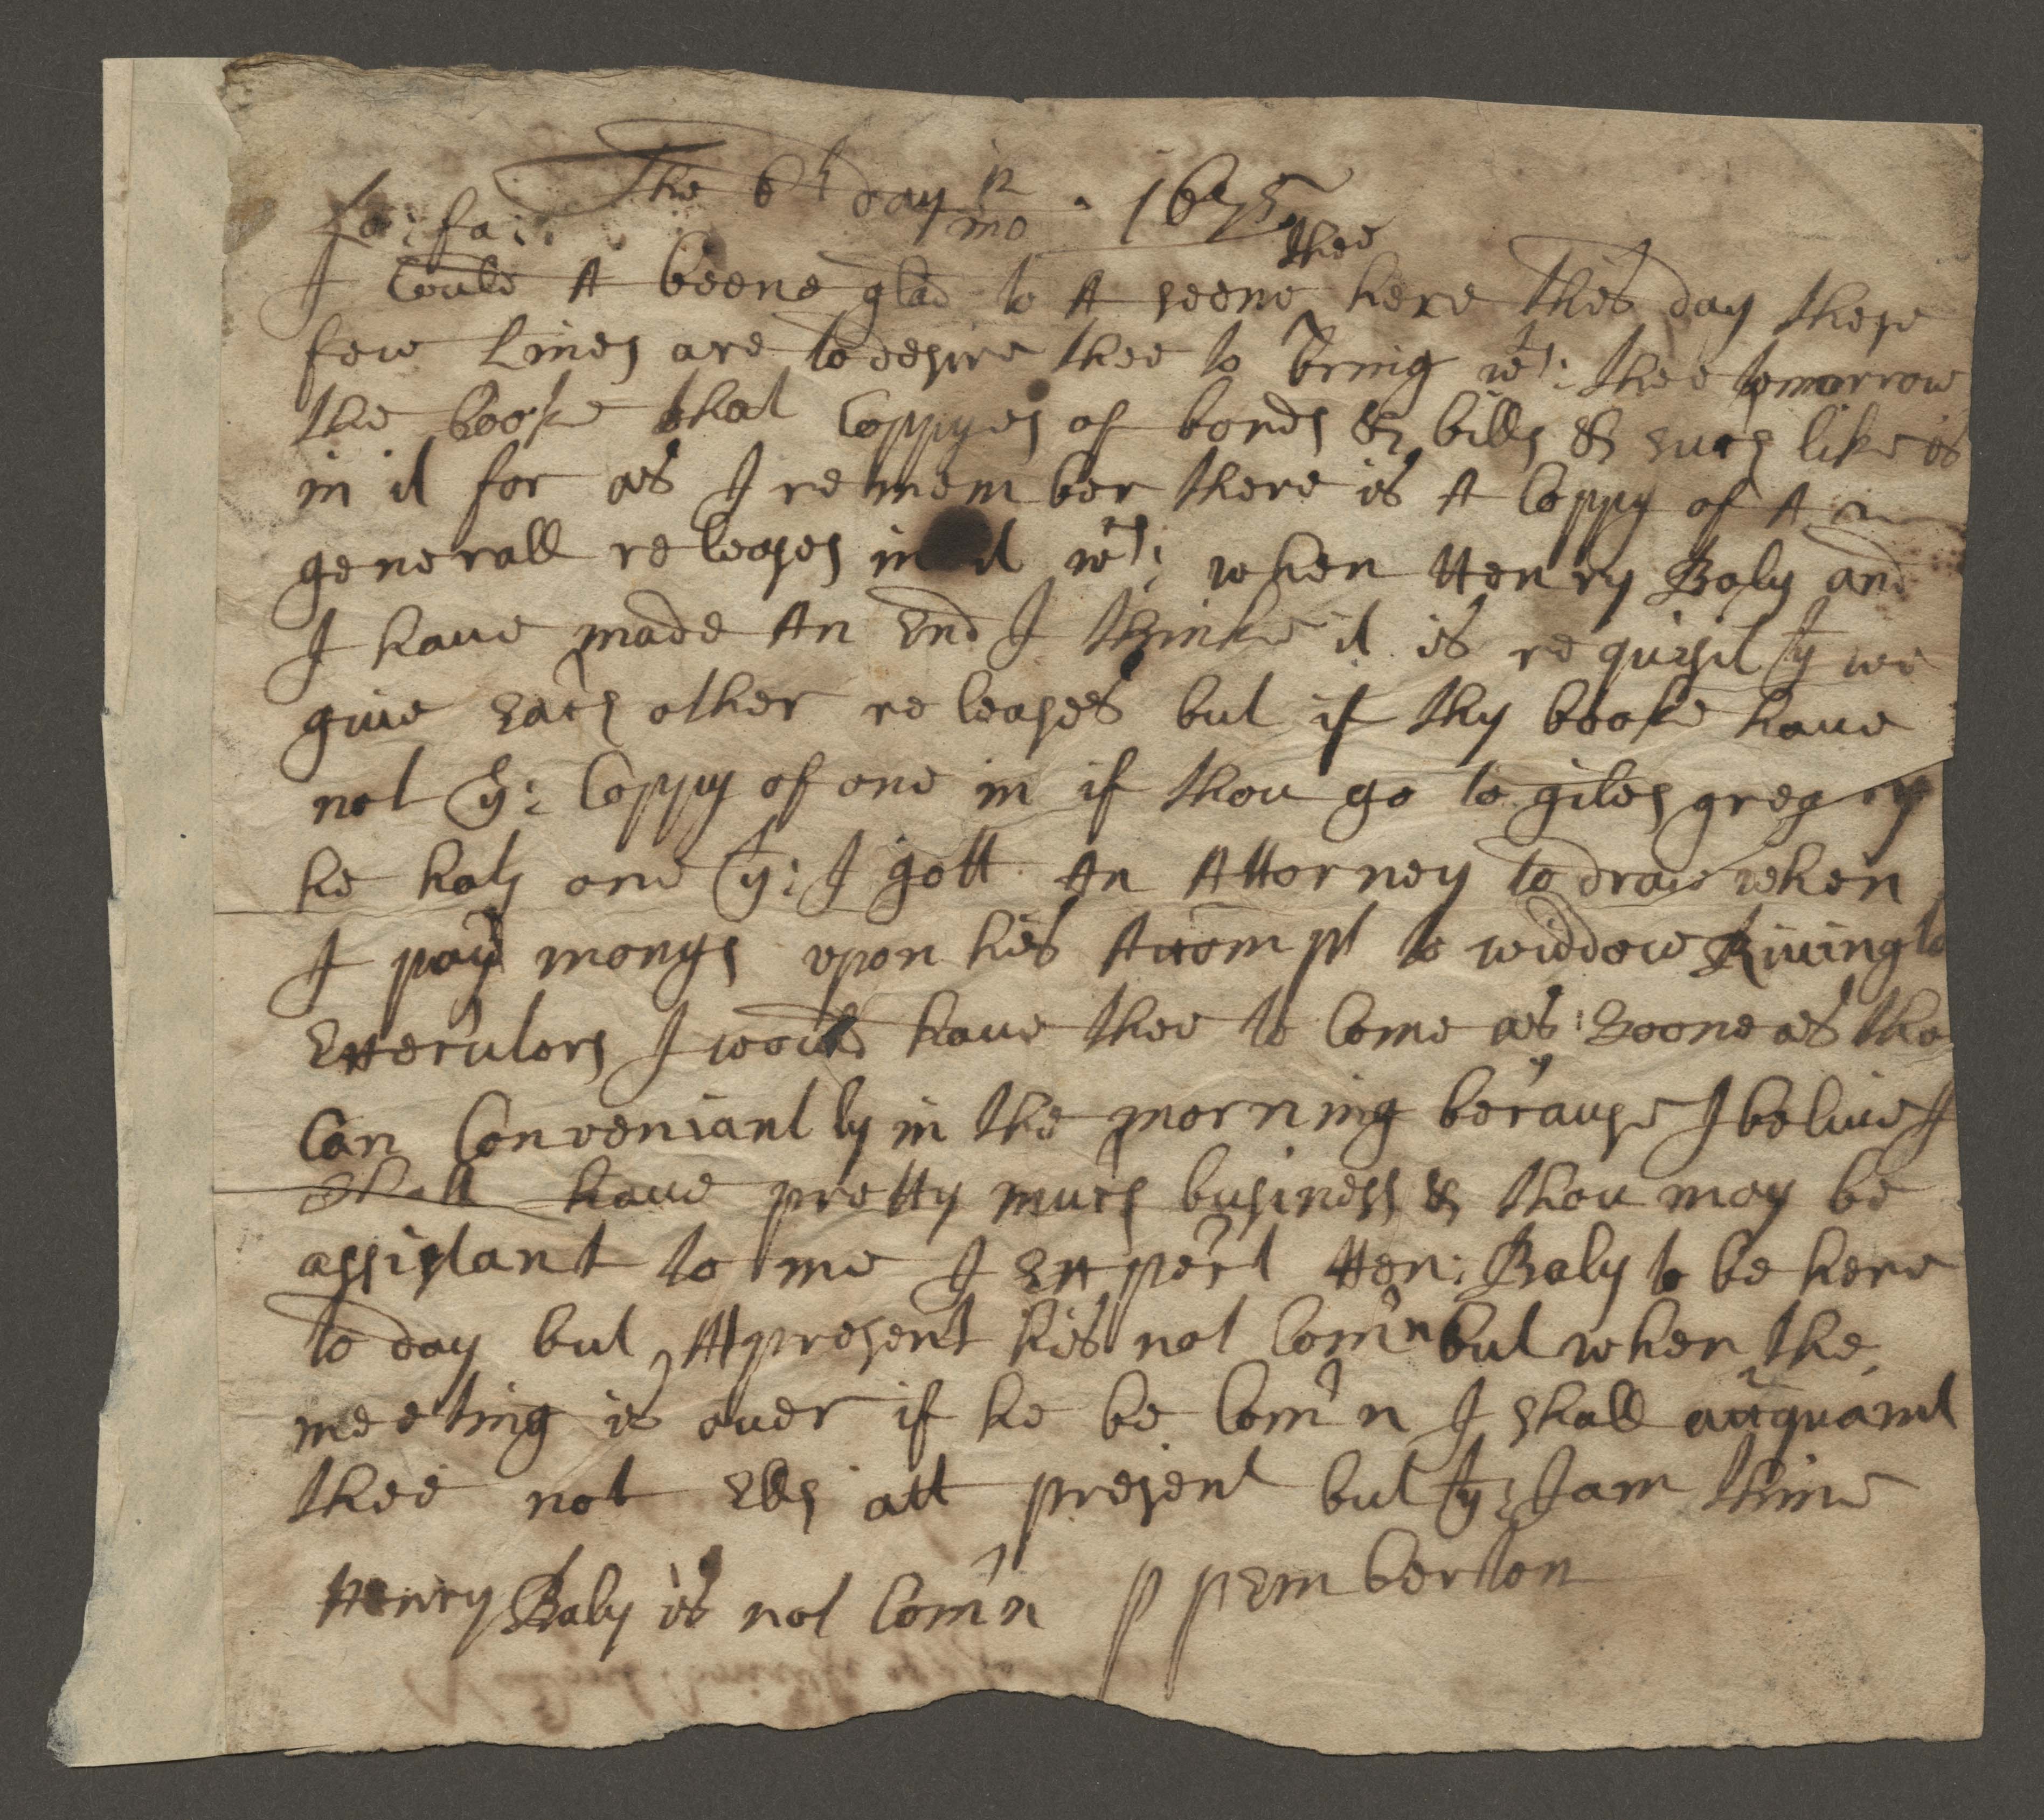 The 6th day 12 mo 1675
Lo: fa:
I Could A beene glad to A seene thee here this day these
few Lines are to desire thee to bring wth: thee tomorrow
the booke that Coppyes of bonds & bills & such like is
in it for as I remember there is A Coppy of A
generall releases in it wch: when Henry Baly and
I haue made An End I thinke it is requisit yt we
giue Each other releases but if thy booke haue
not ye: Coppy of one in if thou go to giles gregory
he hath one yt: I gott An Attorney to draw when
I payd monys vpon his Accompt to widdow Rivingto
Executors I would haue thee to Come as soone as tho
Can Conveniantly in the morning because I beliue I
shall haue pretty much business & thou may be
assistant to me I Expect Hen: Baly to be here
to day but At present his not Com'n but when the
meeting is ouer if he be Com'n I shall acquaint
thee not Els att present but yt: I am thine
Henry Baly is not Com'n P PEmberton